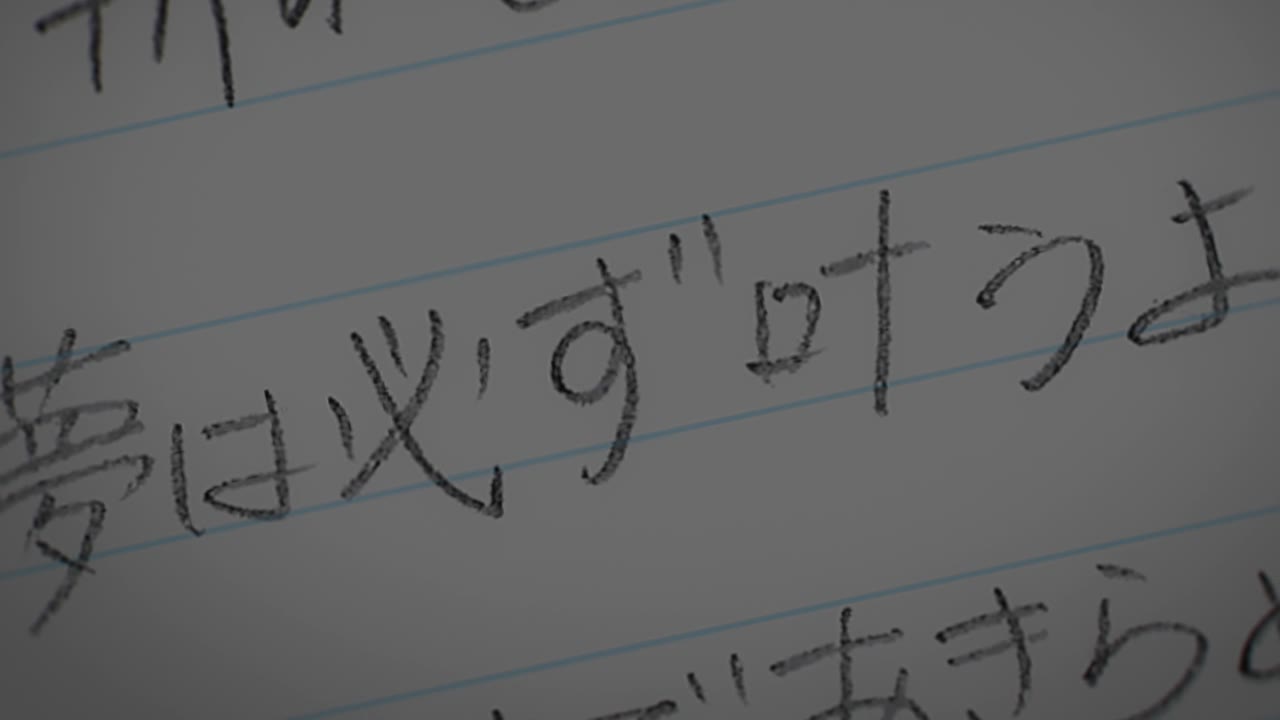 夢は必ず叶うよ
あきら